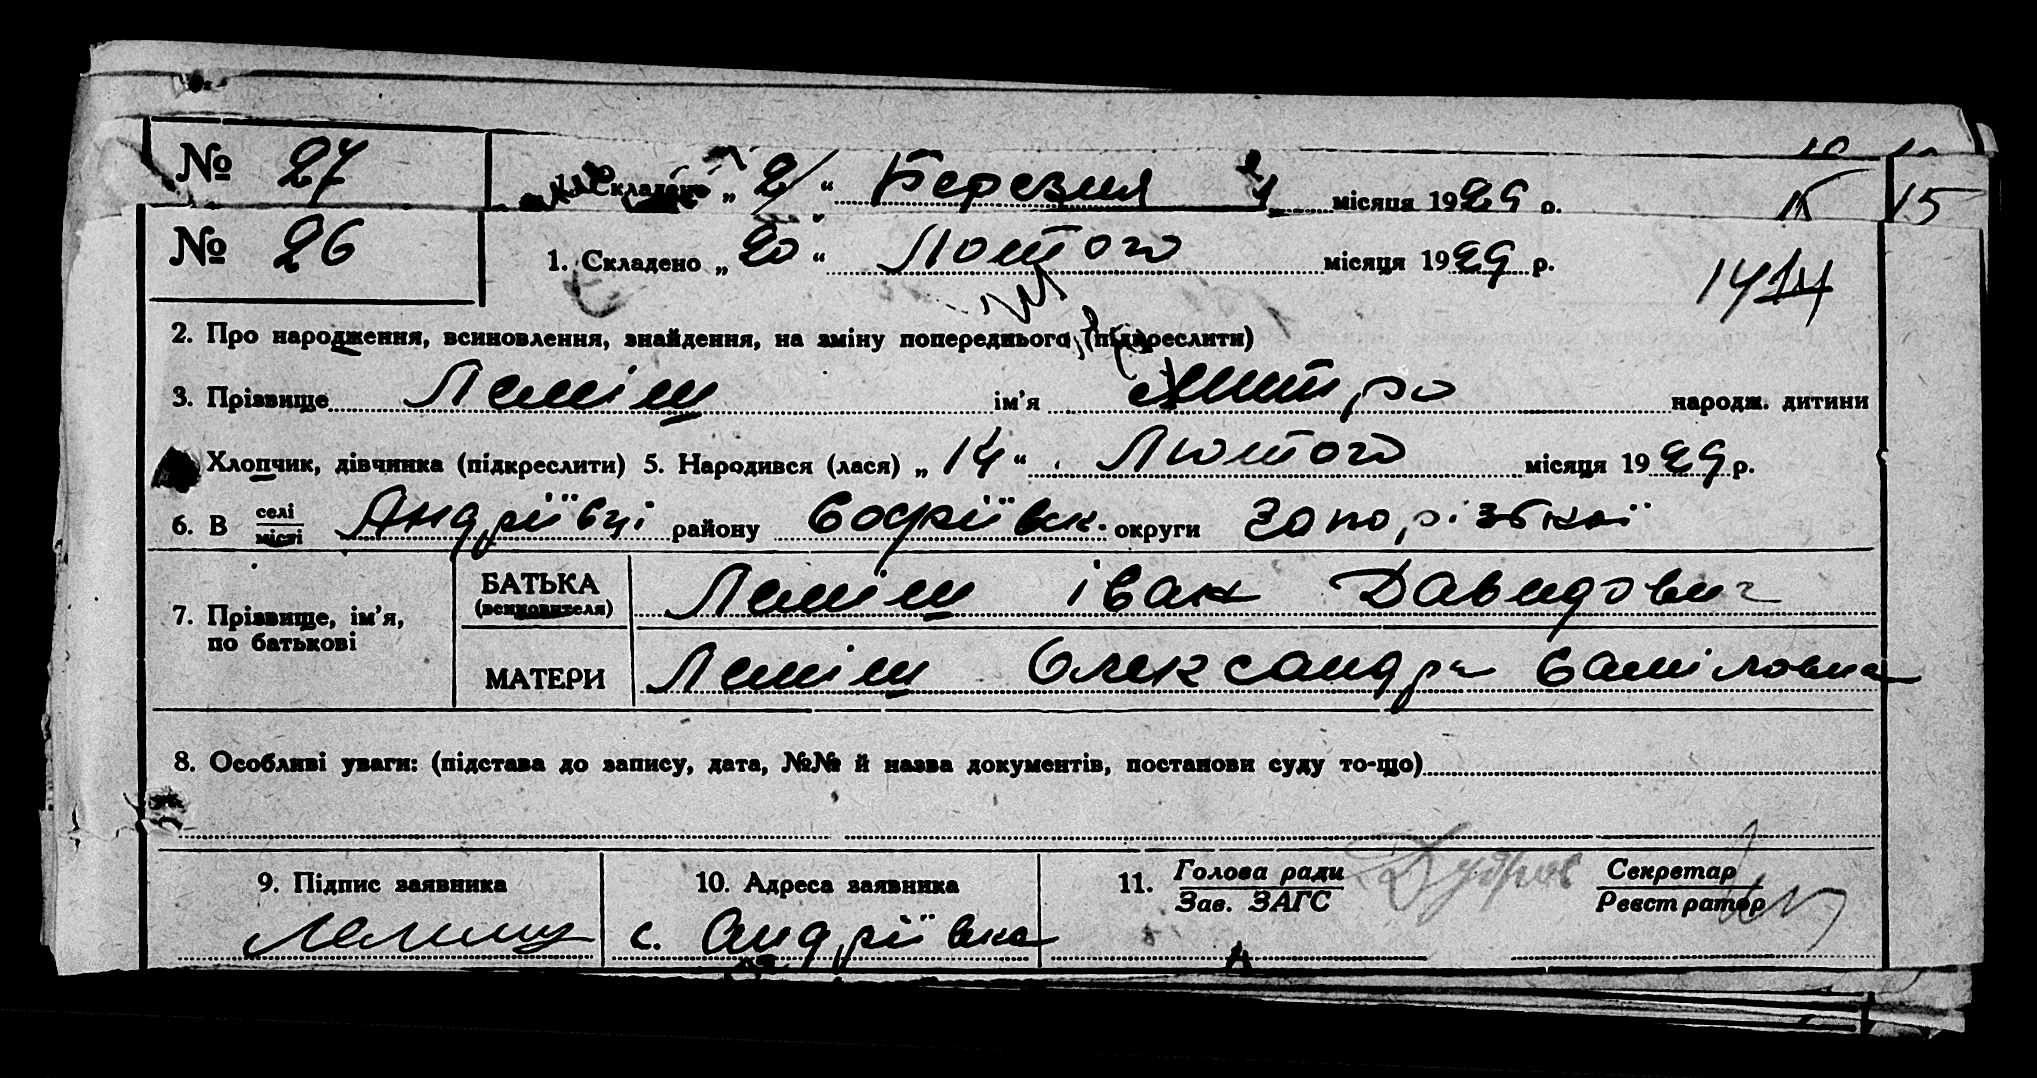 № 27 Складено „ 2/ “ Березня місяця 1929 р.
15 15
№ 26 1. Складено „ 20 “ Лютого місяця 1929 р.
14 14
2. Про народження, всиновлення, знайдення, на зміну попереднього (підкреслити)
3. Прізвище Леміш ім'я Дмитро народж. дитини
Хлопчик, дівчинка (підкреслити) 5. Народився (лася) „ 14 “ Лютого місяця 1929 р.
6. В селі місті Андріївці району Софіївск. округи Запорізької
7. Прізвище, ім'я, по батькові
БАТЬКА (всиновителя) Леміш Іван Давидович
МАТЕРИ Леміш Олександра Самiловна
8. Особливі уваги: (підстава до запису, дата, №№ й назва документів, постанови суду то-що)
9. Підпис заявника 10. Адреса заявника 11. Голова ради Зав. ЗАГС Секретар Реєстратор
с. Андріївка